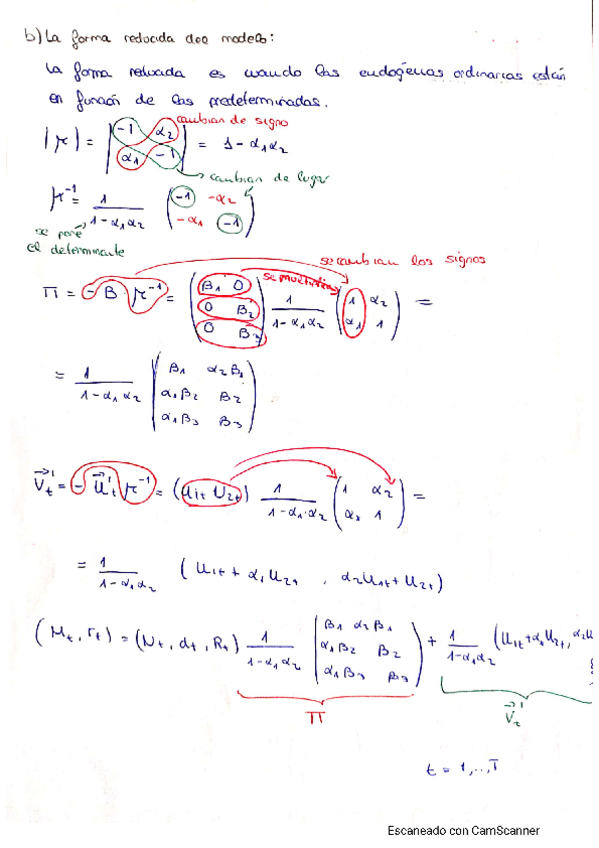 b) La forma reducida del modelo:
La forma reducida es cuando las endógenas ordinarias están
en función de las predeterminadas.
cambian de signo
|Γ| = | -1 α2 ; α1 -1 | = 1 - α1α2
cambian de lugar
Γ⁻¹ = 1/(1 - α1α2) ( -1 -α2 ; -α1 -1 )
se pone
el determinante
se cambian los signos
se multiplica
Π = - B · Γ⁻¹ = ( β1 0 ; 0 β2 ; 0 β3 ) 1/(1 - α1α2) ( 1 α2 ; α1 1 ) =
= 1/(1 - α1α2) ( β1 α2β1 ; α1β2 β2 ; α1β3 β3 )
V⃗t' = - U⃗t' Γ⁻¹ = (U1t U2t) 1/(1 - α1·α2) ( 1 α2 ; α1 1 ) =
= 1/(1 - α1α2) ( U1t + α1U2t , α2U1t + U2t )
(Mt, rt) = (Nt, dt, Rt) 1/(1 - α1α2) ( β1 α2β1 ; α1β2 β2 ; α1β3 β3 ) + 1/(1 - α1α2) (U1t + α1U2t, α2U
Π
V⃗t'
t = 1,..,T
Escaneado con CamScanner